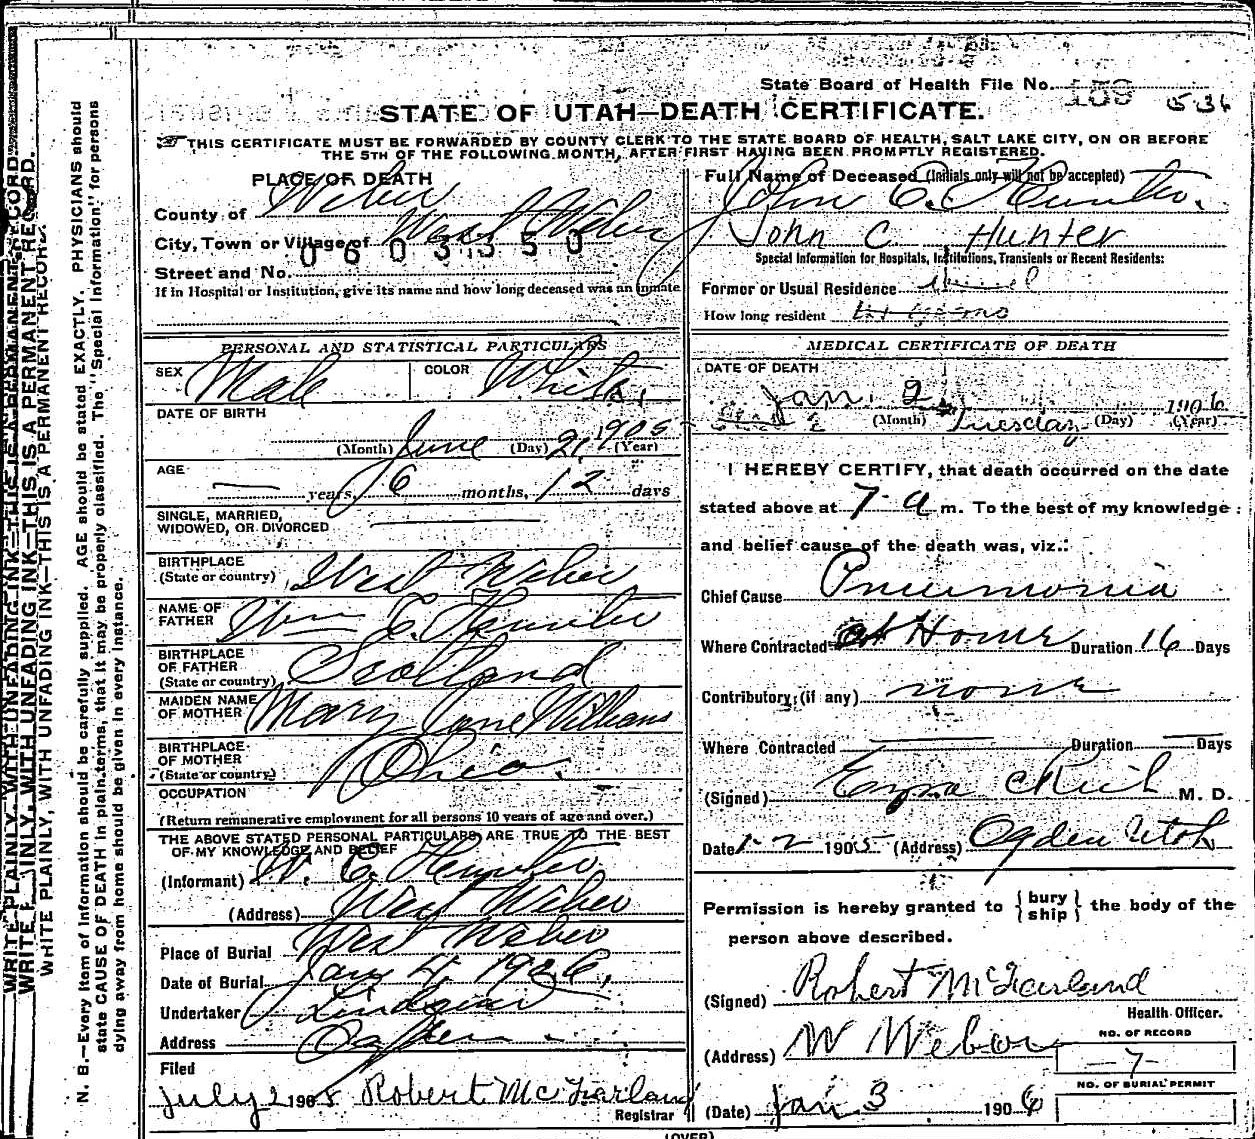 State Board of Health File No. 159 536
STATE OF UTAH—DEATH CERTIFICATE.
THIS CERTIFICATE MUST BE FORWARDED BY COUNTY CLERK TO THE STATE BOARD OF HEALTH, SALT LAKE CITY, ON OR BEFORE
THE 5TH OF THE FOLLOWING MONTH, AFTER FIRST HAVING BEEN PROMPTLY REGISTERED.
PLACE OF DEATH
County of Weber
City, Town or Village of West Weber
0603350
Street and No.
If in Hospital or Institution, give its name and how long deceased was an inmate
PERSONAL AND STATISTICAL PARTICULARS
SEX Male COLOR White
DATE OF BIRTH
(Month) June (Day) 21, 1905 (Year)
AGE
— years, 6 months, 12 days
SINGLE, MARRIED,
WIDOWED, OR DIVORCED
BIRTHPLACE
(State or country) West Weber
NAME OF
FATHER Wm C. Hunter
BIRTHPLACE
OF FATHER
(State or country) Scotland
MAIDEN NAME
OF MOTHER Mary Jane Williams
BIRTHPLACE
OF MOTHER
(State or country) Ohio.
OCCUPATION
(Return remunerative employment for all persons 10 years of age and over.)
THE ABOVE STATED PERSONAL PARTICULARS ARE TRUE TO THE BEST
OF MY KNOWLEDGE AND BELIEF
(Informant) W. C. Hunter
(Address) West Weber
Place of Burial West Weber
Date of Burial Jany 4, 1906,
Undertaker Lindquist
Address Ogden
Filed
July 2 1905 Robert McFarland
Registrar
Full Name of Deceased (Initials only will not be accepted)
John C. Hunter.
John C Hunter
Special Information for Hospitals, Institutions, Transients or Recent Residents:
Former or Usual Residence
How long resident
MEDICAL CERTIFICATE OF DEATH
DATE OF DEATH
Jan. 2 1906
(Month) Tuesday (Day) (Year)
I HEREBY CERTIFY, that death occurred on the date
stated above at 7 a m. To the best of my knowledge
and belief cause of the death was, viz.:
Chief Cause Pneumonia
Where Contracted at Home Duration 16 Days
Contributory (if any) none
Where Contracted — Duration — Days
(Signed) Ezra C Rich M. D.
Date 1-2 1905 (Address) Ogden Utah
Permission is hereby granted to { bury ship } the body of the
person above described.
(Signed) Robert McFarland
Health Officer.
(Address) W Weber
NO. OF RECORD
—7—
NO. OF BURIAL PERMIT
(Date) Jan 3 1906
(OVER)
WRITE PLAINLY, WITH UNFADING INK—THIS IS A PERMANENT RECORD.
WRITE PLAINLY, WITH UNFADING INK—THIS IS A PERMANENT RECORD.
WRITE PLAINLY, WITH UNFADING INK—THIS IS A PERMANENT RECORD.
N. B.—Every item of information should be carefully supplied. AGE should be stated EXACTLY. PHYSICIANS should
state CAUSE OF DEATH in plain terms, that it may be properly classified. The "Special Information" for persons
dying away from home should be given in every instance.